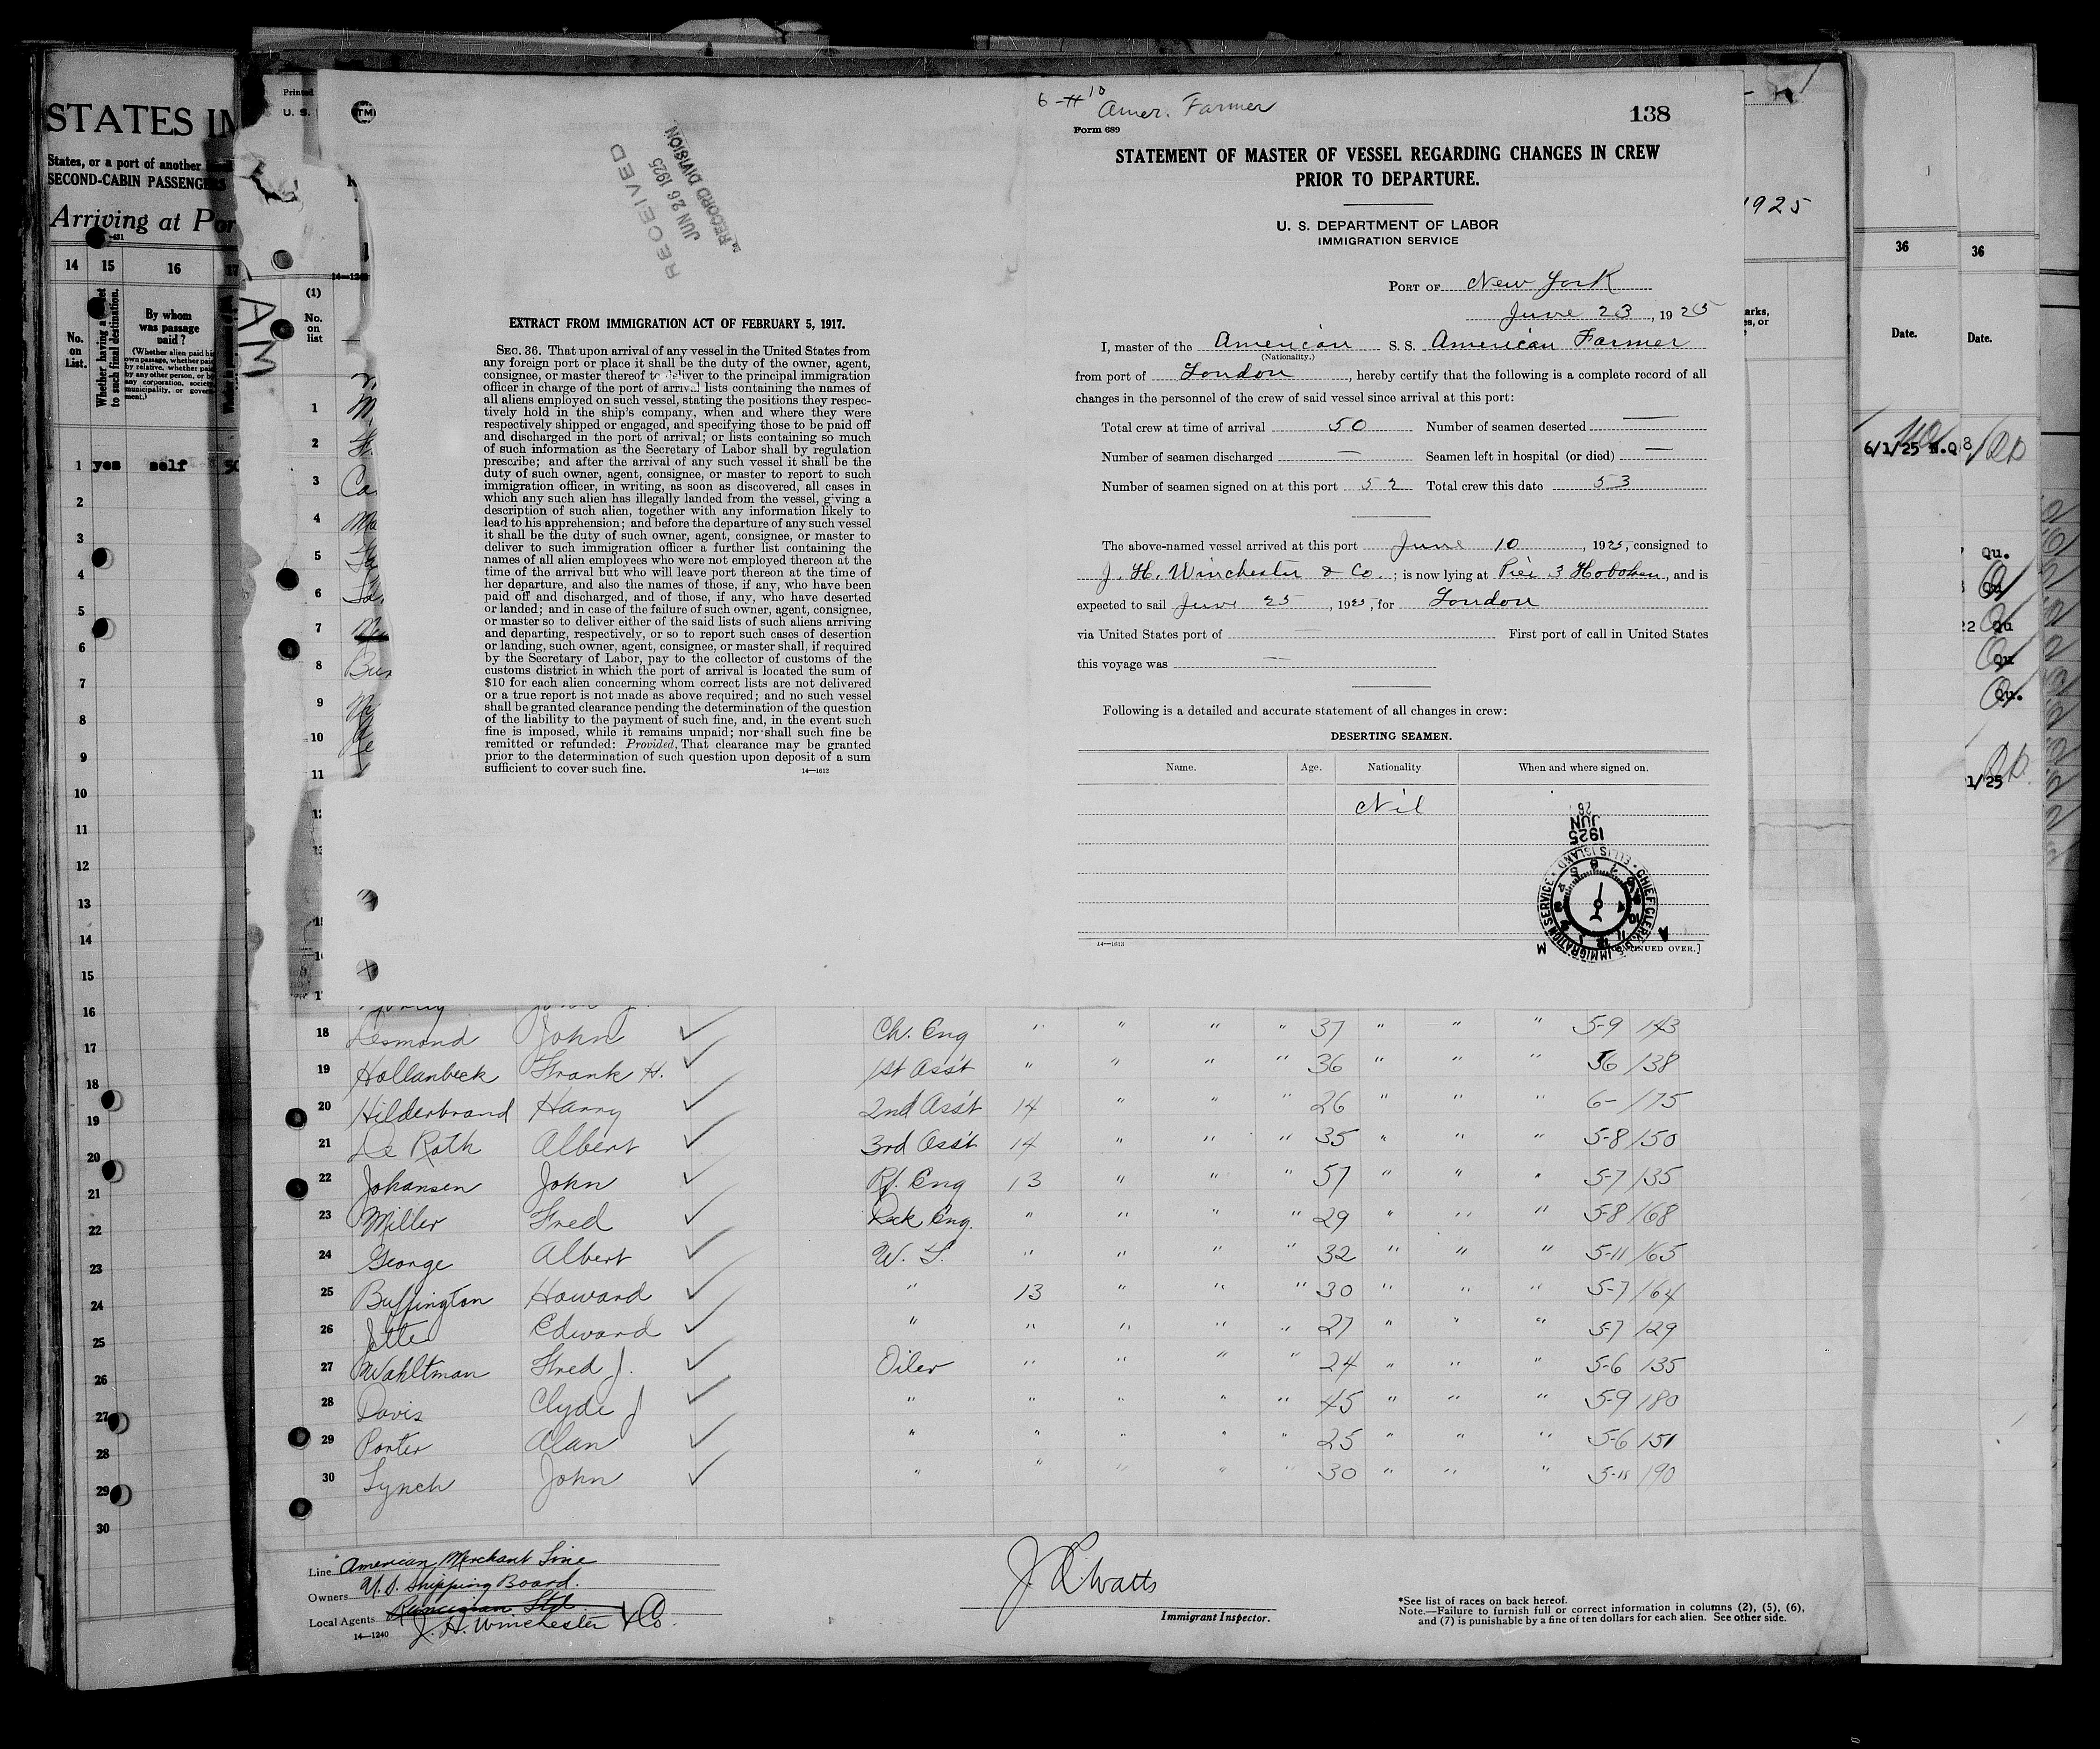 STATES IN
States, or a port of another
SECOND-CABIN PASSENGERS
Arriving at Por
14 15 16 17
No. on List.
Whether having a ticket to such final destination.
By whom was passage paid?
(Whether alien paid his own passage, whether paid by relative, whether paid by any other person, or by any corporation, society, municipality, or government.)
1 yes self 50
2
3
4
5
6
7
8
9
10
11
12
13
14
15
16
17
18
19
20
21
22
23
24
25
26
27
28
29
30
Printed
U. S.
AM
(1)
No. on list
1
2
3 Ca
4
5
6
7
8 Bur
9
10
11
6-# 10
Amer. Farmer
138
Form 689
STATEMENT OF MASTER OF VESSEL REGARDING CHANGES IN CREW
PRIOR TO DEPARTURE.
U. S. DEPARTMENT OF LABOR
IMMIGRATION SERVICE
PORT OF New York
June 23, 1925
I, master of the American S. S. American Farmer
(Nationality.)
from port of London, hereby certify that the following is a complete record of all
changes in the personnel of the crew of said vessel since arrival at this port:
Total crew at time of arrival 50 Number of seamen deserted —
Number of seamen discharged — Seamen left in hospital (or died) —
Number of seamen signed on at this port 52 Total crew this date 53
The above-named vessel arrived at this port June 10, 1925, consigned to
J. H. Winchester & Co.; is now lying at Pier 3 Hoboken, and is
expected to sail June 25, 1925, for London
via United States port of — First port of call in United States
this voyage was —
Following is a detailed and accurate statement of all changes in crew:
DESERTING SEAMEN.
Name. Age. Nationality When and where signed on.
Nil
26
JUN
1925
CHIEF CLERK, U.S. IMMIGRATION SERVICE · ELLIS ISLAND ·
14—1613
[CONTINUED OVER.]
RECEIVED
JUN 26 1925
RECORD DIVISION
EXTRACT FROM IMMIGRATION ACT OF FEBRUARY 5, 1917.
SEC. 36. That upon arrival of any vessel in the United States from
any foreign port or place it shall be the duty of the owner, agent,
consignee, or master thereof to deliver to the principal immigration
officer in charge of the port of arrival lists containing the names of
all aliens employed on such vessel, stating the positions they respec-
tively hold in the ship's company, when and where they were
respectively shipped or engaged, and specifying those to be paid off
and discharged in the port of arrival; or lists containing so much
of such information as the Secretary of Labor shall by regulation
prescribe; and after the arrival of any such vessel it shall be the
duty of such owner, agent, consignee, or master to report to such
immigration officer, in writing, as soon as discovered, all cases in
which any such alien has illegally landed from the vessel, giving a
description of such alien, together with any information likely to
lead to his apprehension; and before the departure of any such vessel
it shall be the duty of such owner, agent, consignee, or master to
deliver to such immigration officer a further list containing the
names of all alien employees who were not employed thereon at the
time of the arrival but who will leave port thereon at the time of
her departure, and also the names of those, if any, who have been
paid off and discharged, and of those, if any, who have deserted
or landed; and in case of the failure of such owner, agent, consignee,
or master so to deliver either of the said lists of such aliens arriving
and departing, respectively, or so to report such cases of desertion
or landing, such owner, agent, consignee, or master shall, if required
by the Secretary of Labor, pay to the collector of customs of the
customs district in which the port of arrival is located the sum of
$10 for each alien concerning whom correct lists are not delivered
or a true report is not made as above required; and no such vessel
shall be granted clearance pending the determination of the question
of the liability to the payment of such fine, and, in the event such
fine is imposed, while it remains unpaid; nor shall such fine be
remitted or refunded: Provided, That clearance may be granted
prior to the determination of such question upon deposit of a sum
sufficient to cover such fine.
14—1612
1925
36 36
Date. Date.
6/1/25 N.Q 8
Qu.
Qu
22 Qu
Qu
Qu.
1/25
18 Desmond John ✓ Ch. Eng " " " " 37 " " " 5-9 143
19 Hollanbeck Frank H. ✓ 1st Ass't " " " " 36 " " " 56 138
20 Hilderbrand Harry ✓ 2nd Ass't 14 " " " 26 " " " 6- 175
21 De Roth Albert ✓ 3rd Ass't 14 " " " 35 " " " 5-8 150
22 Johansen John ✓ Rf. Eng 13 " " " 57 " " " 5-7 135
23 Miller Fred ✓ Deck Eng. " " " " 29 " " " 5-8 168
24 George Albert ✓ W. T. " " " " 32 " " " 5-11 165
25 Buffington Howard ✓ " 13 " " " 30 " " " 5-7 164
26 Jette Edward ✓ " " " " " 27 " " " 5-7 129
27 Wahltman Fred J. ✓ Oiler " " " " 24 " " " 5-6 135
28 Davis Clyde J ✓ " " " " " 45 " " " 5-9 180
29 Porter Alan ✓ " " " " " 25 " " " 5-6 151
30 Lynch John ✓ " " " " " 30 " " " 5-11 190
Line American Merchant Line
Owners U. S. Shipping Board.
Local Agents J. H. Winchester & Co.
14—1240
J. R. Watts
Immigrant Inspector.
*See list of races on back hereof.
Note.—Failure to furnish full or correct information in columns (2), (5), (6),
and (7) is punishable by a fine of ten dollars for each alien. See other side.